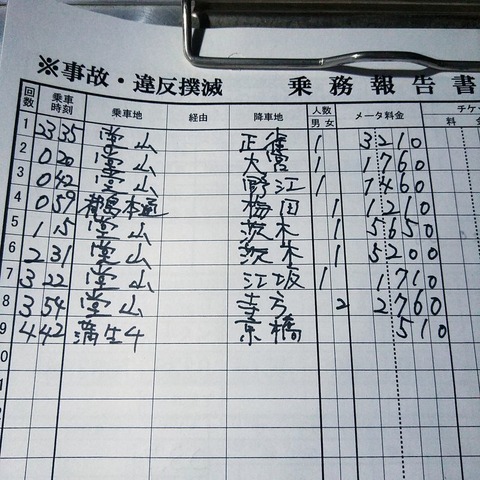 ※事故・違反撲滅 乗務報告書
回数 乗車時刻 乗車地 経由 降車地 人数 男 女 メータ料金 チケッ 料 金
1 23 35 堂山 正雀 1 3210
2 0 20 堂山 大宮 1 1760
3 0 42 堂山 野江 1 1460
4 0 59 都島本通 梅田 1 1210
5 1 15 堂山 茨木 1 5650
6 2 31 堂山 茨木 1 5200
7 3 22 堂山 江坂 1 1710
8 3 54 堂山 寺方 2 2760
9 4 42 蒲生4 京橋 510
0
1
2
3
4